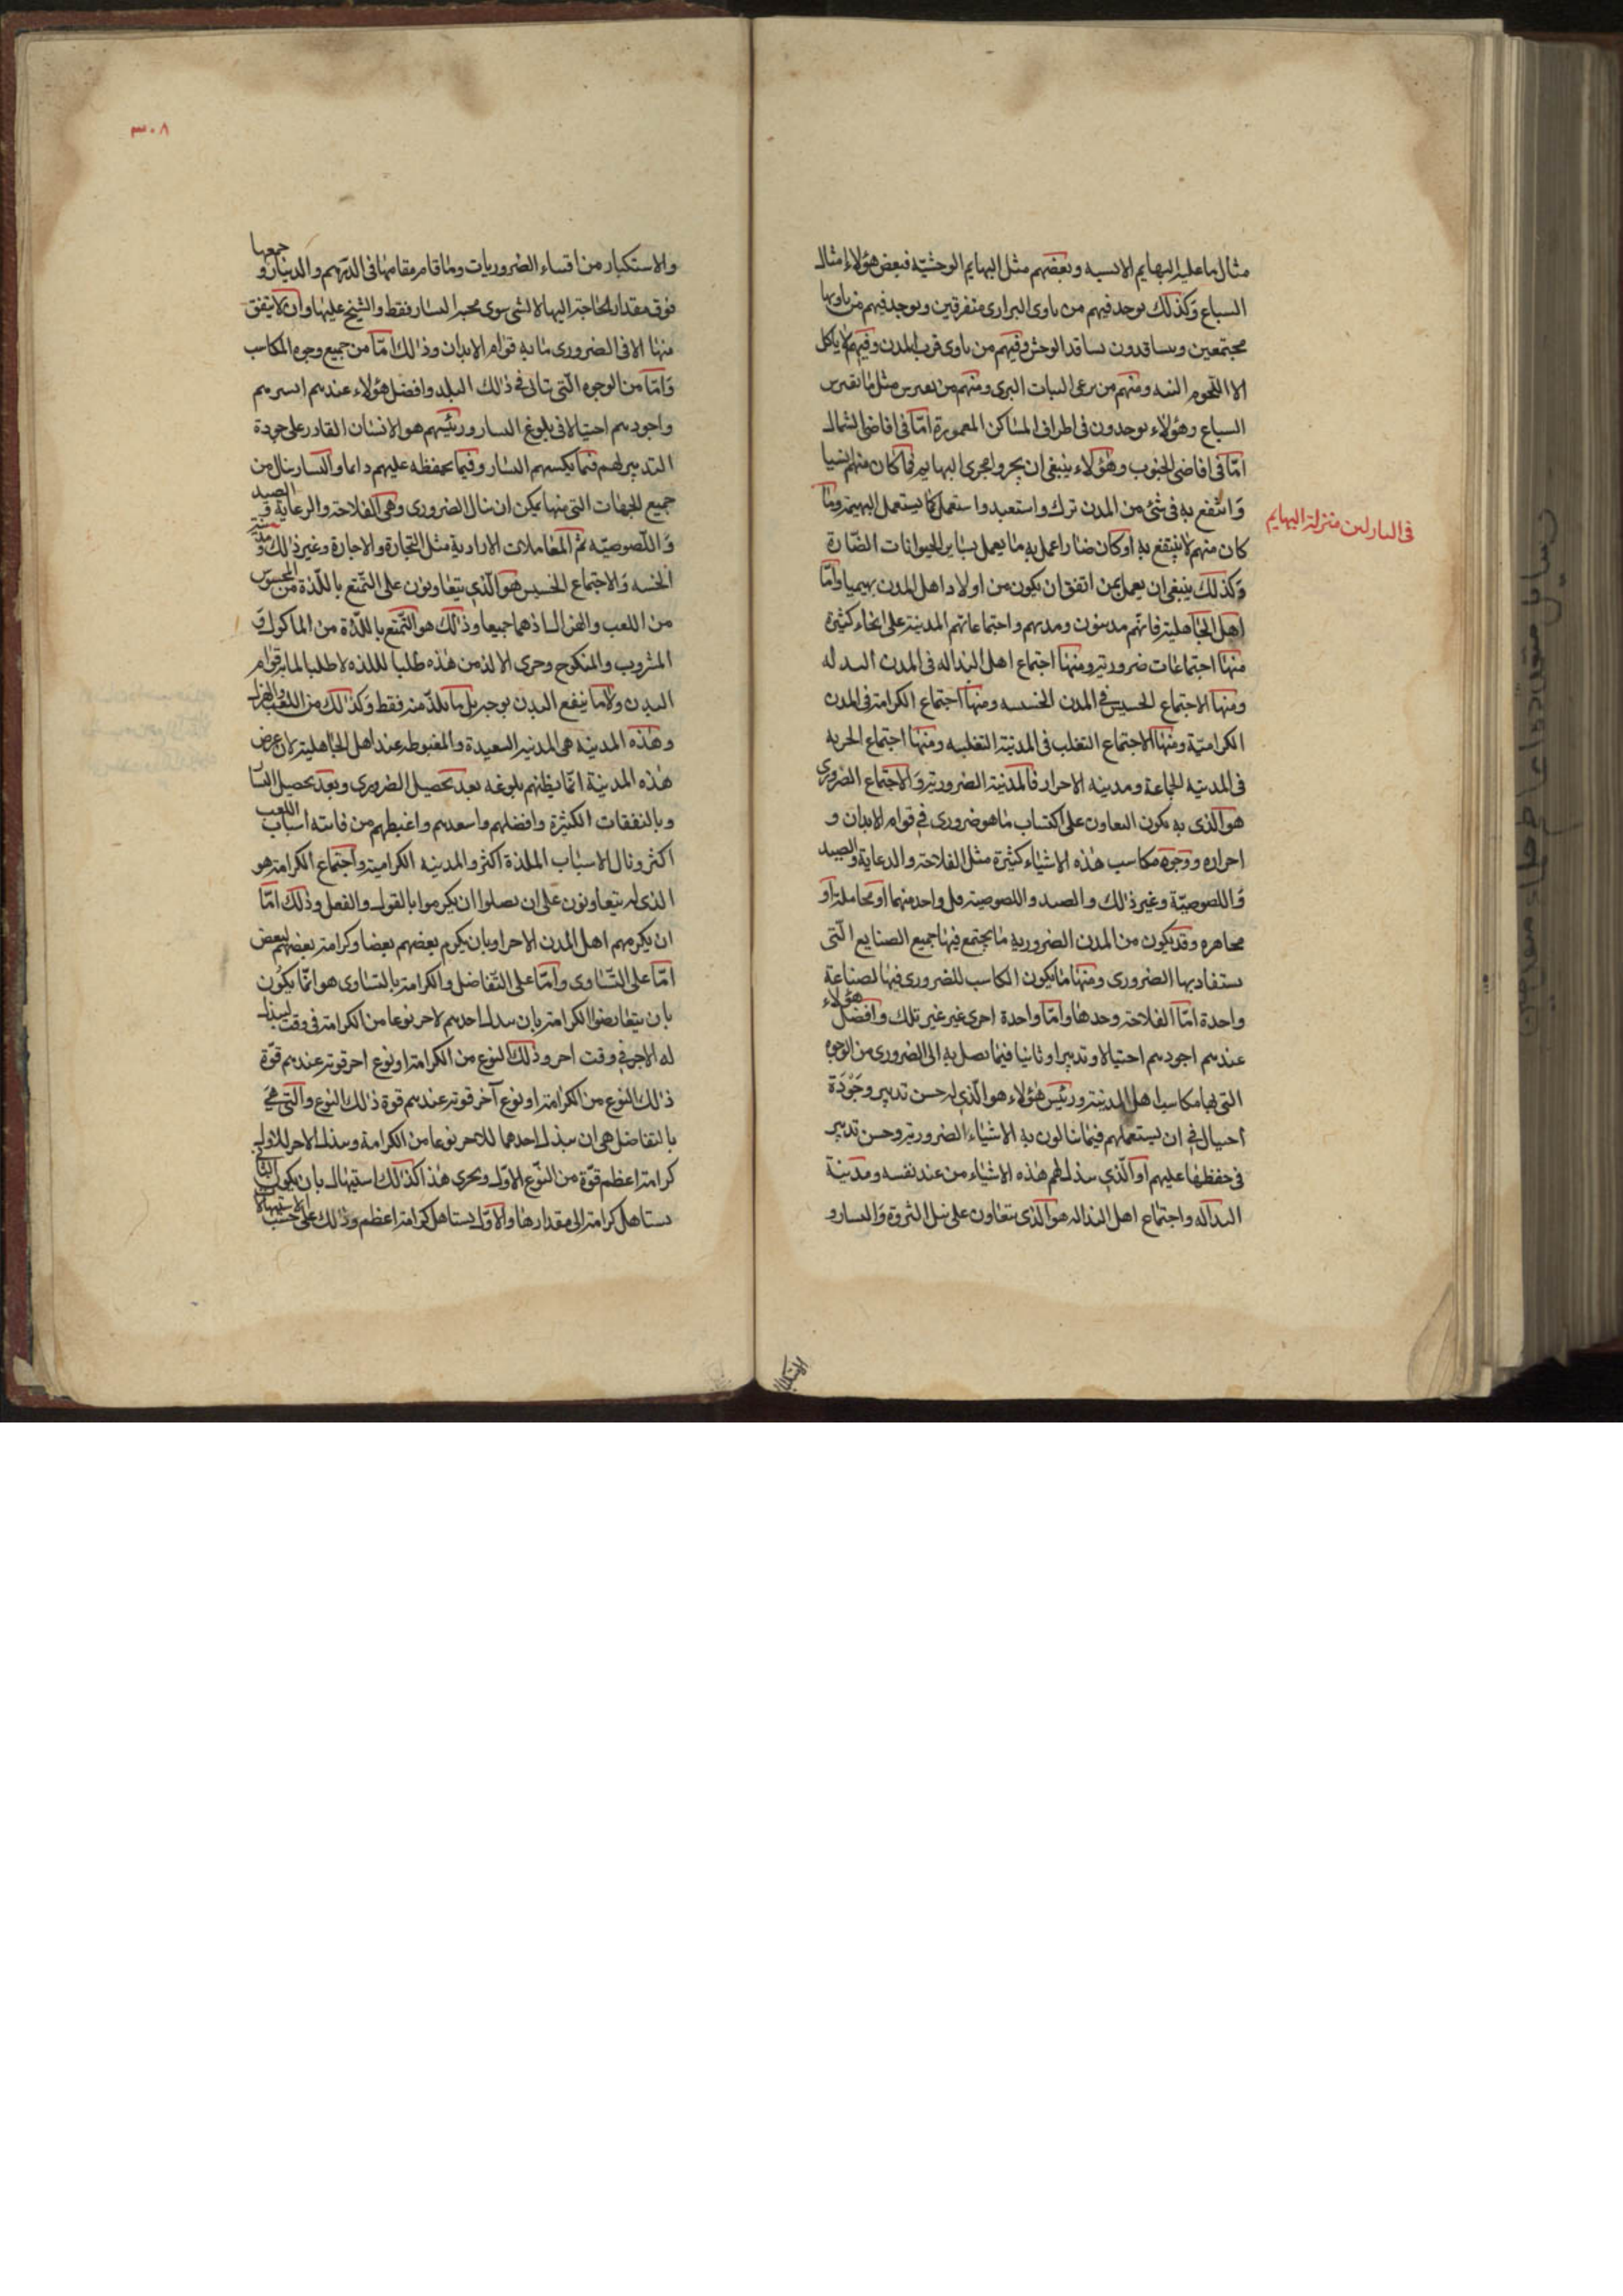 مثال ما عليه البهايم الانسيه وبعضهم مثل البهايم الوحشيّة فبعض هؤلاء امثال
السباع وكذلك يوجد فيهم من ياوى البرارى متفرقين ويوجد فيهم من ياويها
مجتمعين ويتسافدون تسافد الوحش وفيهم من ياوى قرب المدن وفيهم لا ياكل
الا اللّحوم النيه ومنهم من يرعى النبات البرى ومنهم من يفترس مثل ما يفترس
السباع وهؤلاء يوجدون فى اطراف المساكن المعمورة امّا فى اقاصى الشمال
امّا فى اقاصى الجنوب وهؤلاء ينبغى ان يجروا مجرى البهايم فما كان منهم انسيا
وانتفع به فى شئ من المدن ترك واستعبد واستعمل كما يستعمل البهيمة وما
كان منهم لا ينتفع به او كان ضارا عمل به ما يعمل بساير الحيوانات الضارة
وكذلك ينبغى ان يعمل بمن اتفق ان يكون من اولاد اهل المدن بهيميا وامّا
اهل الجاهلية فانّهم مدنيون ومدنهم واجتماعاتهم المدنية على انحاء كثيرة
منها اجتماعات ضرورية ومنها اجتماع اهل النذاله فى المدن النذله
ومنها الاجتماع الخسيس فى المدن الخسيسه ومنها اجتماع الكرامة فى المدن
الكراميّة ومنها الاجتماع التغلب فى المدينة التغلبيه ومنها اجتماع الحريه
فى المدينه الجماعة ومدينه الاحرار فالمدينة الضرورية والاجتماع الضرورى
هو الّذى به يكون التعاون على اكتساب ما هو ضرورى فى قوام الابدان و
احرازه ووجوه مكاسب هذه الاشياء كثيرة مثل الفلاحة والرعاية والصيد
واللصوصيّة وغير ذلك والصيد واللصوصية كل واحد منهما او مخاتلة او
مجاهره وقد يكون من المدن الضروريه ما يجتمع فيها جميع الصنايع الّتى
يستفاد بها الضرورى ومنها ما يكون المكاسب للضرورى فيها بصناعة
واحدة امّا الفلاحة وحدها وامّا واحدة اخرى غير غير تلك وافضل هؤلاء
عندهم اجودهم احتيالا وتدبيرا وثانيا فيما يصل به الى الضرورى من الوجوه
التى بها مكاسب اهل المدينة ورئيس هؤلاء هو الّذى له حسن تدبير وجَوْدَة
احتيال فى ان يستعملهم فيما ينالون به الاشياء الضرورية وحسن تدبير
فى حفظها عليهم او الّذى يبذل لهم هذه الاشياء من عند نفسه ومدينة
النذاله واجتماع اهل النذاله هو الّذى يتعاون على نيل الثروة واليسار و
فى النازلين منزلة البهايم
الاستكثار
٣٠٨
والاستكثار من اقتناء الضروريات وما قام مقامها فى الدّرهم والدينار وجمعها
فوق مقدار الحاجة اليها لا لشى سوى محبة اليسار فقط والشح عليها وان لا ينفق
منها الا فى الضرورى ما به قوام الابدان وذلك امّا من جميع وجوه المكاسب
وامّا من الوجوه الّتى تتاتى فى ذلك البلد وافضل هؤلاء عندهم ايسرهم
واجودهم احتيالا فى بلوغ اليسار ورئيسهم هو الانسان القادر على جودة
التدبير لهم فيما يكسبهم اليسار وفيما يحفظه عليهم دائما واليسار ينال من
جميع الجهات التى منها يمكن ان ينال الضرورى وهى الفلاحة والرعاية والصيد
واللّصوصيّه ثم المعاملات الاراديه مثل التجارة والاجارة وغير ذلك ومدينة
الخسه والاجتماع الخسيس هو الّذى يتعاونون على التّمتع باللّذة من المحسوس
من اللعب والهزل او هما جميعا وذلك هو التّمتع باللّذة من الماكول و
المشروب والمنكوح وتحرى الالذ من هذه طلبا للذه لا طلبا لما به قوام
البدن ولا ما ينفع البدن بوجه بل ما يلذّ منه فقط وكذلك من اللعب والهزل
وهذه المدينه هى المدينه السعيدة والمغبوطه عند اهل الجاهلية لان غرض
هذه المدينة انّما يظنهم بلوغه بعد تحصيل الضرورى وبعد تحصيل اليسا
وبالنفقات الكثيرة وافضلهم واسعدهم واغبطهم من فاتته اسباب اللعب
اكثر ونال الاسباب الملذة اكثر والمدينه الكراميه واجتماع الكرامة هو
الذى له يتعاونون على ان يصلوا ان يكرموا بالقول والفعل وذلك امّا
ان يكرمهم اهل المدن الاخر او بان يكرم بعضهم بعضا وكرامة بعضهم لبعض
امّا على التّساوى وامّا على التّفاضل والكرامة بالتساوى هو انّما يكون
بان يتقارضوا الكرامة بان يبذل احدهم لاخر نوعا من الكرامة فى وقت ليبذل
له الاخر فى وقت اخر وذلك النوع من الكرامة او نوع اخر قوته عندهم قوّة
ذلك النوع من الكرامة او نوع آخر قوته عندهم قوة ذلك النوع والتى هى
بالتفاضل هى ان يبذل احدهما للاخر نوعا من الكرامة ويبذل الاخر للاول
كرامة اعظم قوّة من النّوع الاوّل ويجرى هذا كذلك استيهال بان يكون الثانى
يستاهل كرامة الى مقدار ها والاوّل يستاهل كرامة اعظم وذلك على حسب الاستيهال